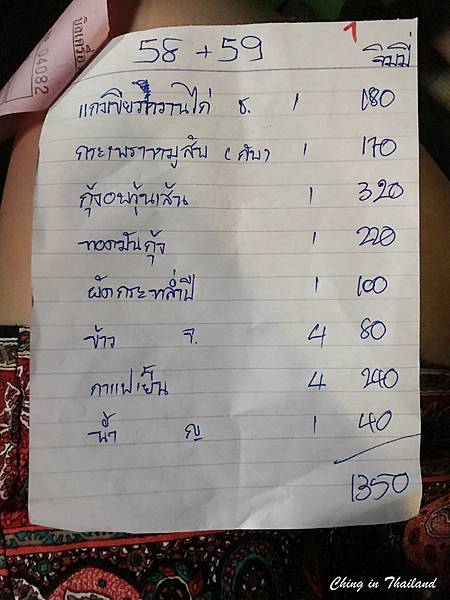 04082
1
58 + 59 จิมมี่
แกงเขียวหวานไก่ ธ. 1 180
กะเพราหมูสับ (สับ) 1 170
กุ้งอบวุ้นเส้น 1 320
ทอดมันกุ้ง 1 220
ผัดกระหล่ำปี 1 100
ข้าว จ. 4 80
กาแฟเย็น 4 240
น้ำ ญ 1 40
1350
Ching in Thailand